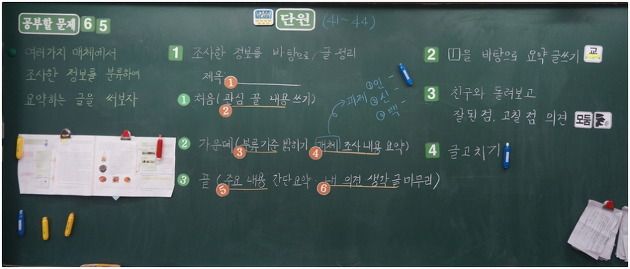 공부할 문제 6 5
단원 (41~44)
여러가지 매체에서
조사한 정보를 분류하여
요약하는 글을 써보자
1 조사한 정보를 바탕으로 글 정리
제목 ①
① 처음 (관심 끌 내용 쓰기)
②
② 가운데 (분류기준 밝히기 개체 조사 내용 요약)
③ ④
③ 끝 (주요 내용 간단요약 내 의견 생각 글 마무리)
⑤ ⑥
①인
②신
③백
2 ①을 바탕으로 요약 글쓰기 교
3 친구와 돌려보고
잘된 점, 고칠 점 의견 모둠
4 글 고치기